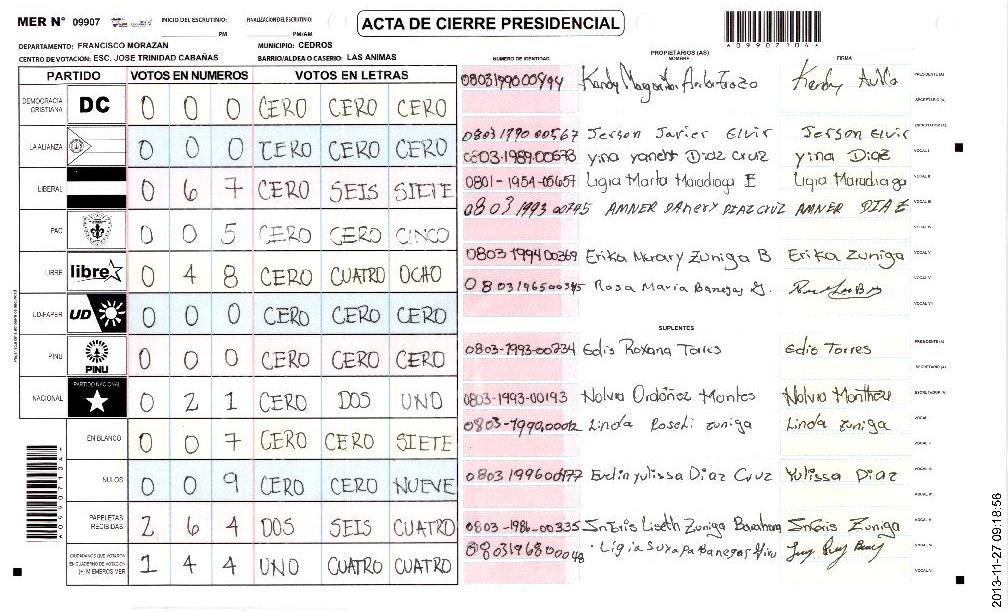 MER N° 09907
INICIO DEL ESCRUTINIO: PM
FINALIZACION DEL ESCRUTINIO: PM/AM
ACTA DE CIERRE PRESIDENCIAL
A099071044
DEPARTAMENTO: FRANCISCO MORAZAN
MUNICIPIO: CEDROS
CENTRO DE VOTACIÓN: ESC. JOSE TRINIDAD CABAÑAS
BARRIO/ALDEA O CASERIO: LAS ANIMAS
PARTIDO VOTOS EN NUMEROS VOTOS EN LETRAS
DEMOCRACIA CRISTIANA DC 0 0 0 CERO CERO CERO
LA ALIANZA 0 0 0 CERO CERO CERO
LIBERAL 0 6 7 CERO SEIS SIETE
PAC 0 0 5 CERO CERO CINCO
LIBRE libre 0 4 8 CERO CUATRO OCHO
UD-FAPER UD 0 0 0 CERO CERO CERO
PINU PINU 0 0 0 CERO CERO CERO
NACIONAL PARTIDO NACIONAL 0 2 1 CERO DOS UNO
EN BLANCO 0 0 7 CERO CERO SIETE
NULOS 0 0 9 CERO CERO NUEVE
PAPELETAS RECIBIDAS 2 6 4 DOS SEIS CUATRO
CIUDADANOS QUE VOTARON EN CUADERNO DE VOTACION (+) MIEMBROS MER 1 4 4 UNO CUATRO CUATRO
NUMERO DE IDENTIDAD PROPIETARIOS (AS) NOMBRE FIRMA
Kendy PRESIDENTE (A)
SECRETARIO (A)
0803 1990 00567 Jerson Javier Elvir Jerson Elvir ESCRUTADOR (A)
0803-1989-00678 yina yaneth Diaz Cruz yina Diaz VOCAL I
0801-1954-05657 Ligia Marta Maradiaga E Ligia Maradiaga VOCAL II
0803 1993 00745 AMNER DANERY DIAZ CRUZ AMNER DIAZ VOCAL III
VOCAL IV
0803 1994 00369 Erika Zuniga B Erika Zuniga VOCAL V
0803196500345 Rosa Maria Banegas G.
SUPLENTES
0803-1993-00234 Edis Roxana Torres Edis Torres PRESIDENTE (A)
SECRETARIO (A)
0803-1993-00193 Nolvia Ordoñez Montes Nolvia ESCRUTADOR (A)
Linda zuniga Linda zuniga VOCAL I
0803 1996 00177 yulissa Diaz Cruz Yulissa Diaz
0803-1986-00335 Liseth Zuniga Zuniga
0803196800048 Ligia Suyapa Banegas
A099071044
2013-11-27 09:18:56